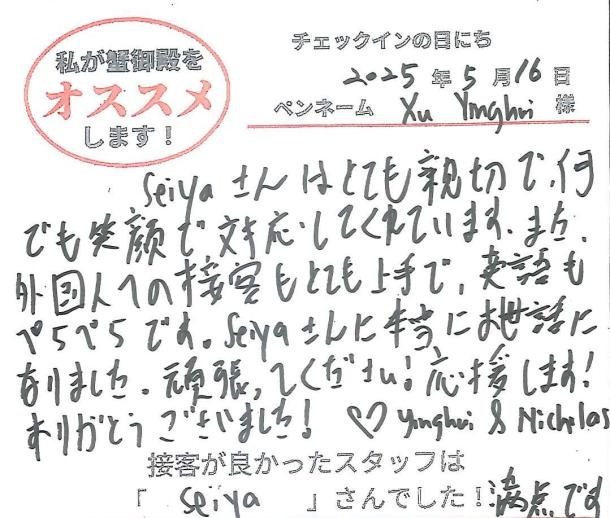 私が蟹御殿を
オススメ
します！
チェックインの日にち
2025年5月16日
ペンネーム Xu Yinghui 様
Seiyaさんはとても親切で、何
でも笑顔で対応してくれています。また、
外国人への接客もとても上手で、英語も
ぺらぺらです。Seiyaさんに本当にお世話に
なりました。頑張ってください！応援します！
ありがとうございました！ ♡ Yinghui & Nicholas
接客が良かったスタッフは
「 Seiya 」さんでした！満点です